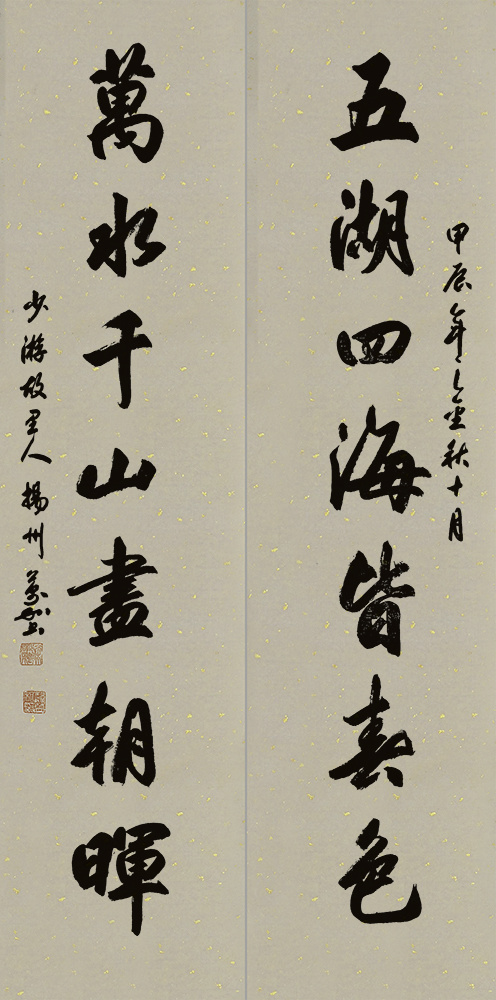 甲辰年之金秋十月
五湖四海皆春色
萬水千山盡朝暉
少游故里人揚州